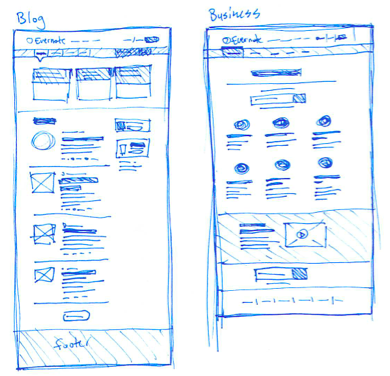 Blog
Evernote
footer
Business
Evernote